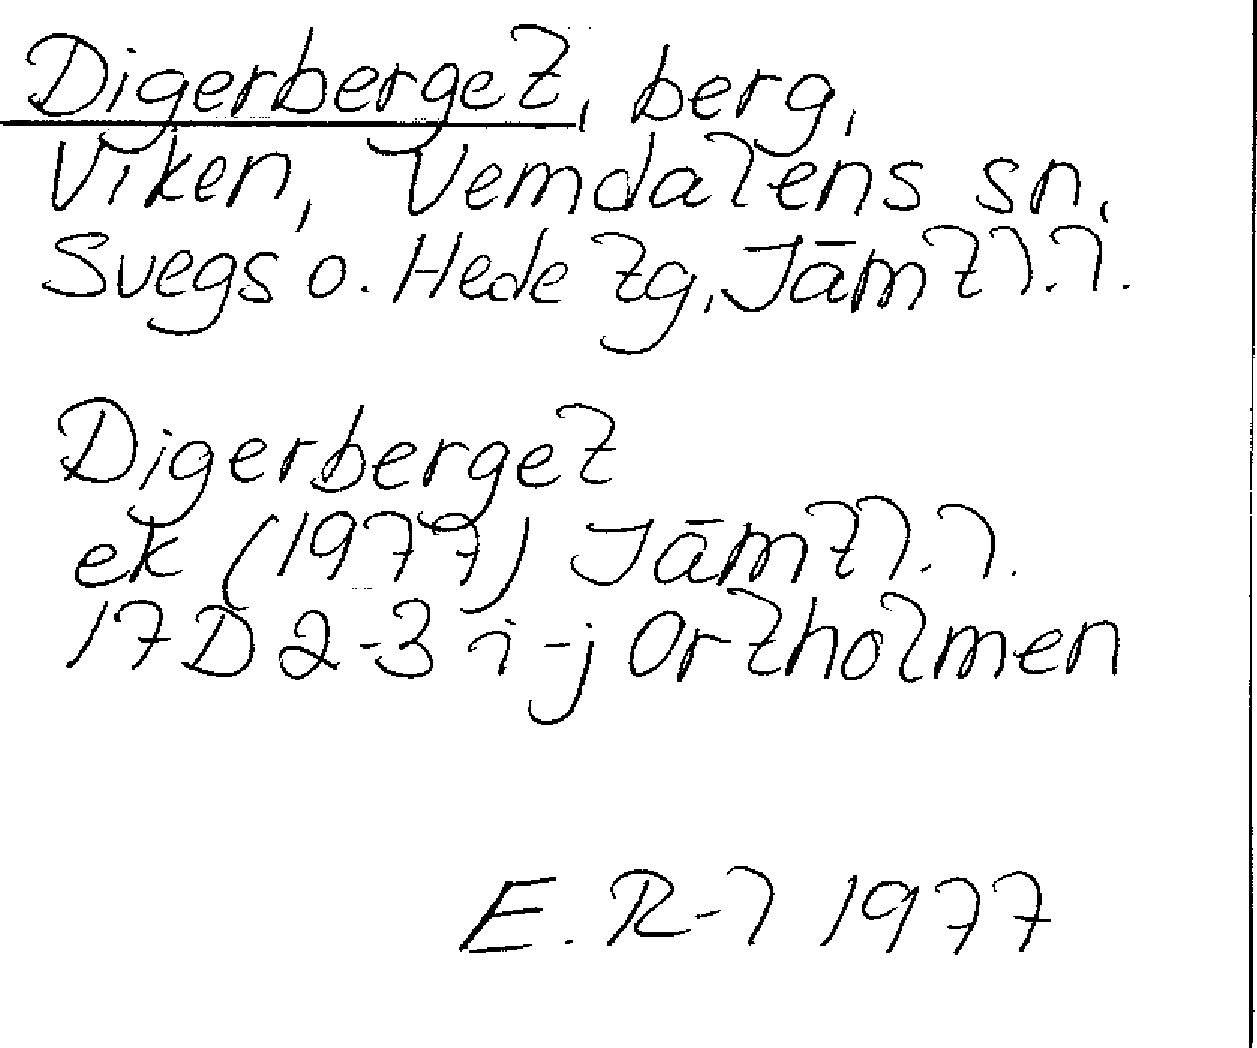 Digerberget, berg,
Viken, Vemdalens sn,
Svegs o. Hede tg, Jämtl. l.
Digerberget
ek (1977) Jämtl. l.
17D 2-3 i-j Ortholmen
E. R-l 1977